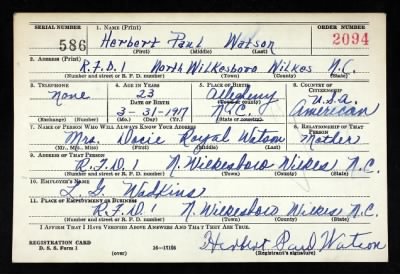 SERIAL NUMBER 1. NAME (Print) ORDER NUMBER
586 Herbert Paul Watson 2094
(First) (Middle) (Last)
2. ADDRESS (Print)
R.F.D. 1 North Wilkesboro Wilkes N.C.
(Number and street or R. F. D. number) (Town) (County) (State)
3. TELEPHONE 4. AGE IN YEARS 5. PLACE OF BIRTH 6. COUNTRY OF CITIZENSHIP
None 23 U.S.A.
DATE OF BIRTH
3-31-1917 N.C. American
(Mo.) (Day) (Yr.) (State or country)
7. NAME OF PERSON WHO WILL ALWAYS KNOW YOUR ADDRESS 8. RELATIONSHIP OF THAT PERSON
Mrs. Royal Watson Mother
(Mr., Mrs., Miss) (First) (Middle) (Last)
9. ADDRESS OF THAT PERSON
R.F.D. 1 N. Wilkesboro Wilkes N.C.
(Number and street or R. F. D. number) (Town) (County) (State)
10. EMPLOYER'S NAME
L. G. Watkins
11. PLACE OF EMPLOYMENT OR BUSINESS
R.F.D. 1 N. Wilkesboro Wilkes N.C.
(Number and street or R. F. D. number) (Town) (County) (State)
I AFFIRM THAT I HAVE VERIFIED ABOVE ANSWERS AND THAT THEY ARE TRUE.
REGISTRATION CARD
D. S. S. Form 1 (over) 16—17105 Herbert Paul Watson
(Registrant's signature)